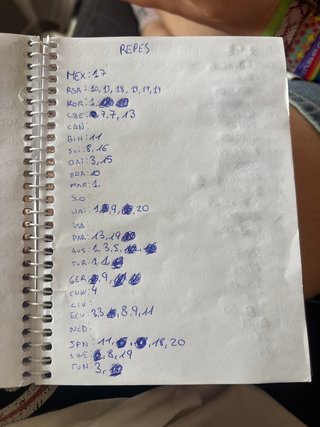 REPES
MEX: 17
RSA: 10, 13, 18, 19, 19, 19
KOR: 1,
CZE: 7, 7, 13
CAN:
BIH: 11
SUI: 8, 16
QAT: 3, 15
BRA: 10
MAR: 1,
SCO:
HAI: 1, 9, 20
USA:
PAR: 13, 19
AUS: 1, 3, 5,
TUR: 1, 1
GER: 9,
CUW: 4
CIV:
ECU: 3, 3, 8, 9, 11
NED:
JPN: 11, 18, 20
SWE: 8, 19
TUN: 3,